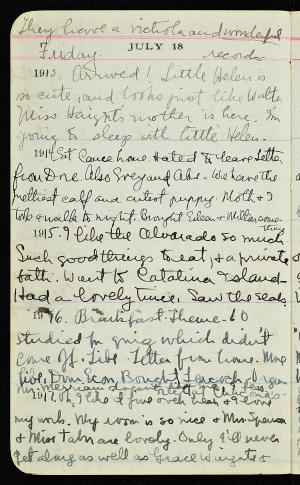 They have a victrola and wonderful
JULY 18
Friday. records
1913. Arrived! Little Helen is
so cute, and looks just like Walter
Miss Haight's mother is here. I'm
going to sleep with little Helen.
1914. Got home. Hated to leave. Letter
from Dne. Also Greg and Abs. We have the
prettiest calf and cutest puppy. Moth & I
took a walk to night. Brought Edean & Milton some
thing
1915. I like the Alvarado so much
Such good things to eat, & a private
bath. Went to Catalina Island
Had a lovely time. Saw the seals.
1916. Breakfast. Theme - 60
Studied for quiz which didn't
come off. Libe. Letter from home. More
libe, Dom. Econ. Bought
1917. Oh, I like I fine over here & I love
my work. My room is so nice & Mrs.
& Miss are lovely. Only I'll never
get along as well as Grace &